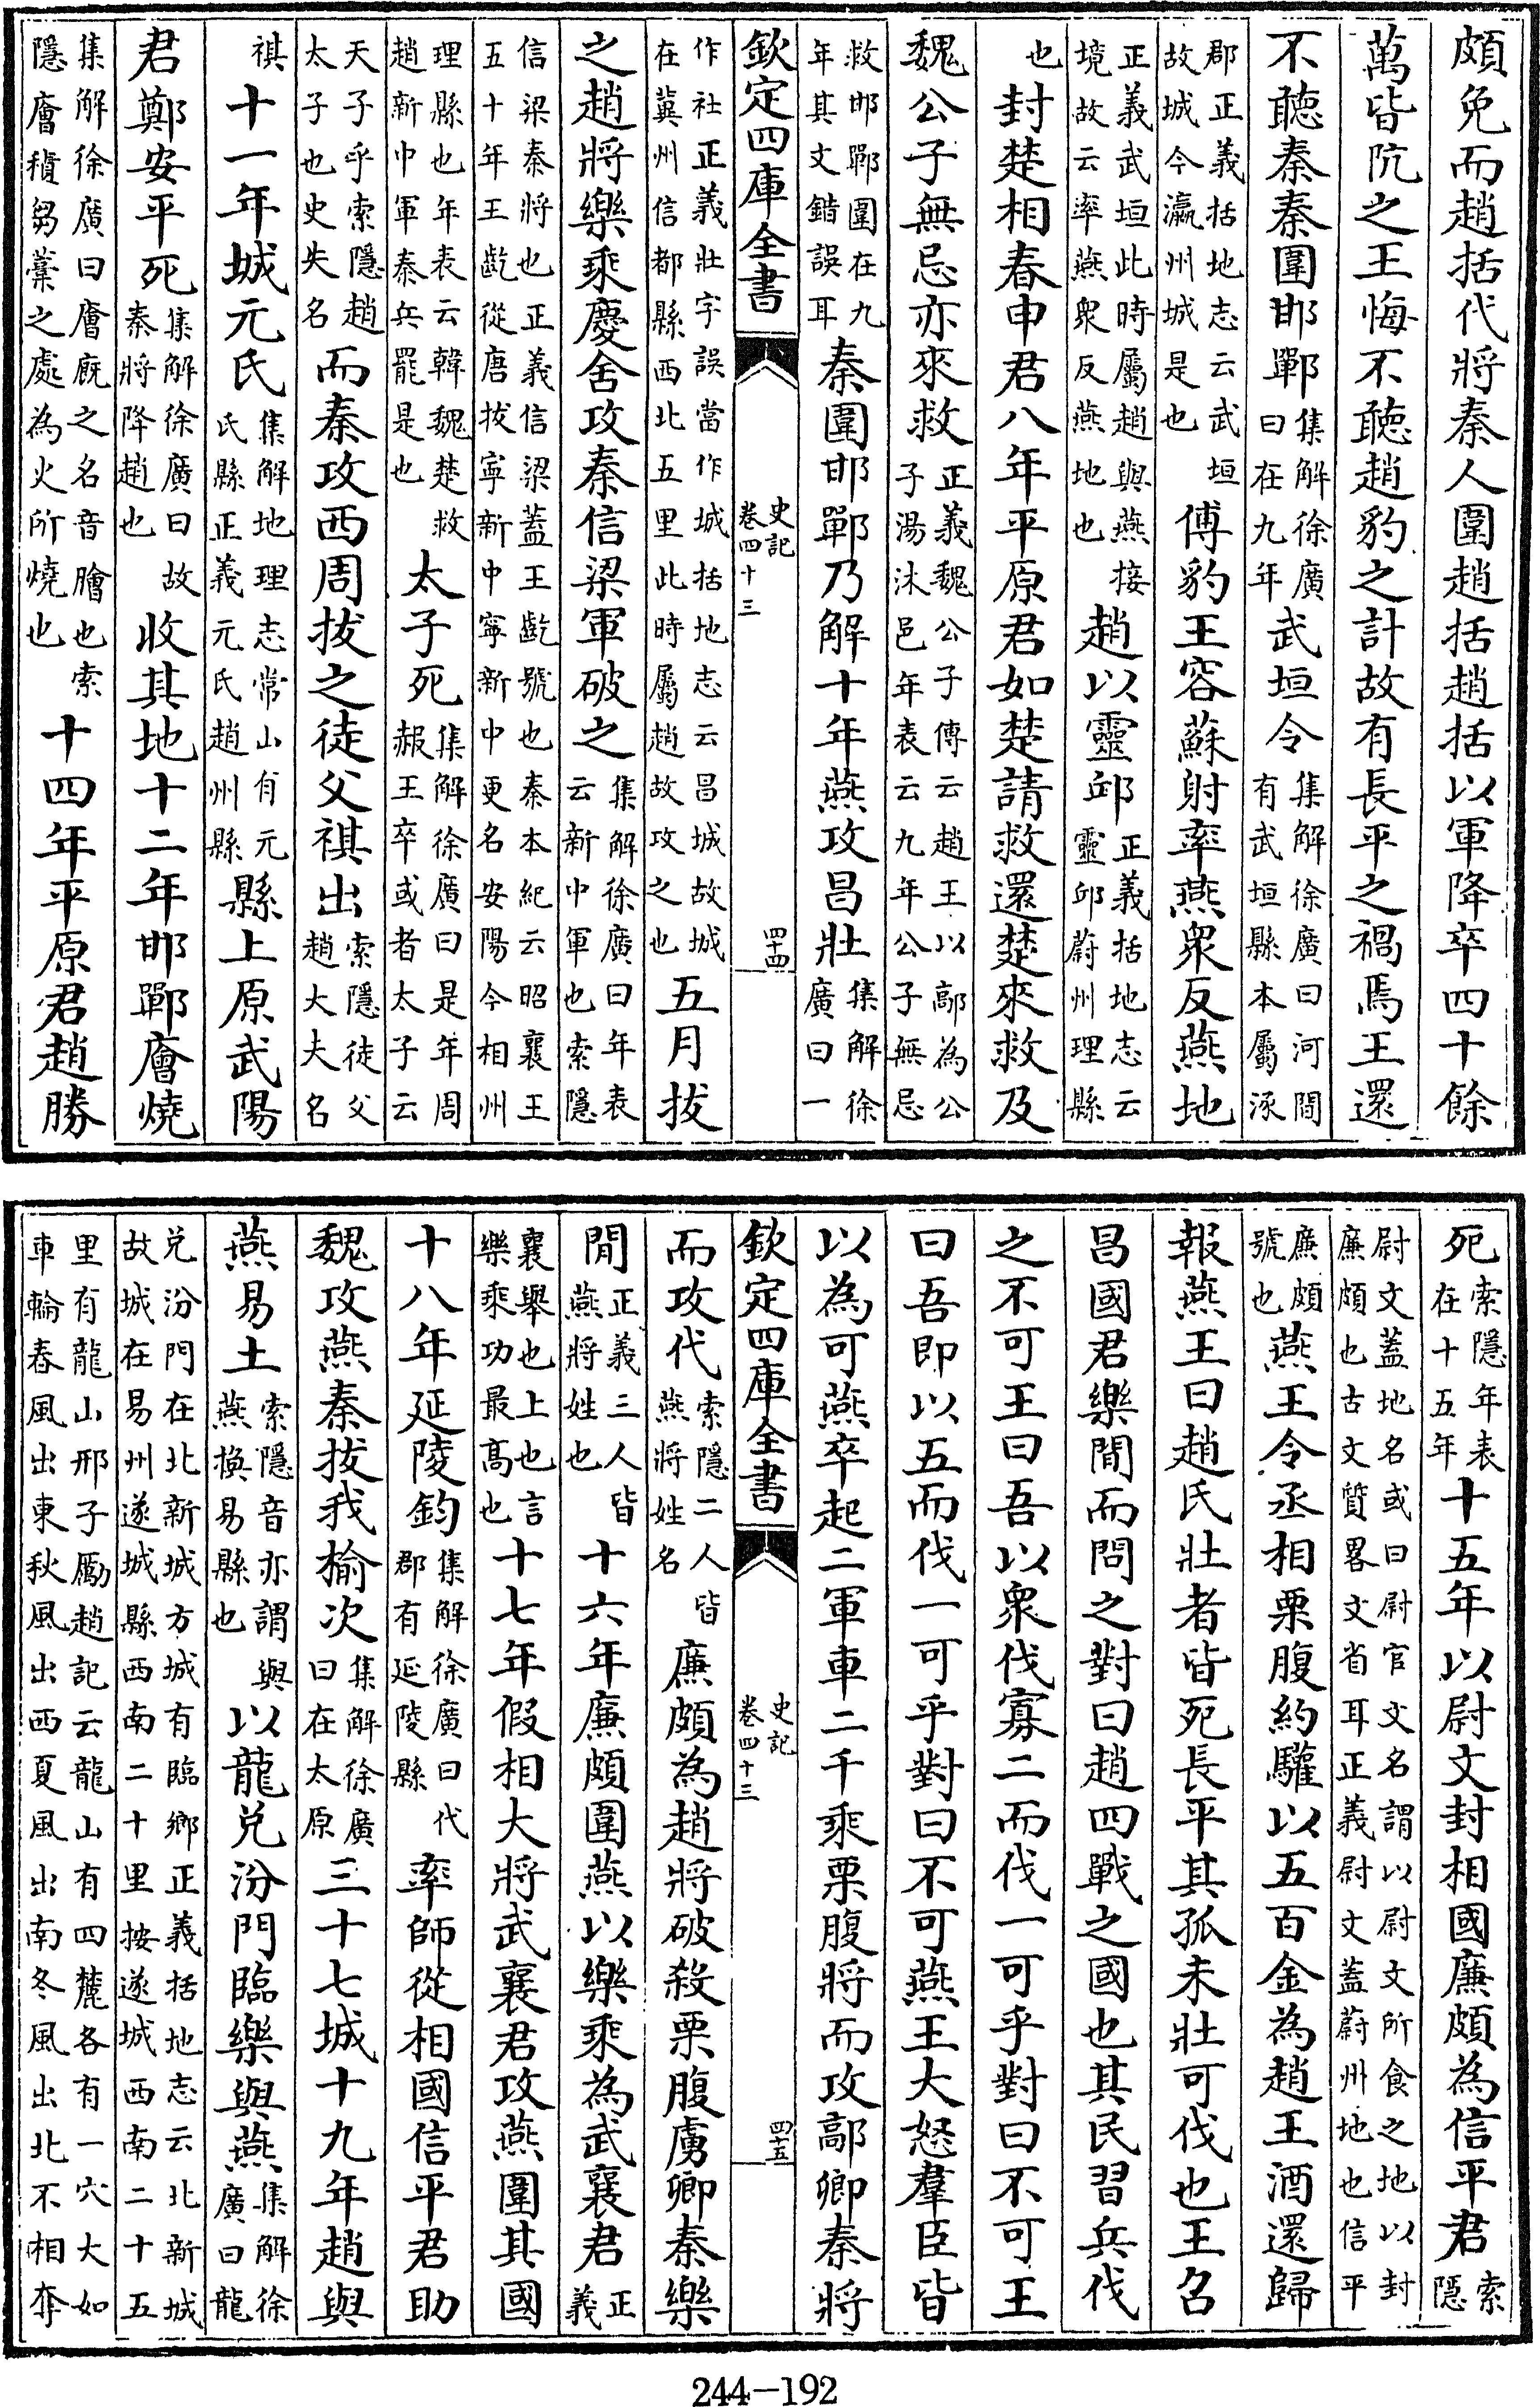 頗免而趙括代將秦人圍趙括趙括以軍降卒四十餘
萬皆阬之王悔不聽趙豹之計故有長平之禍焉王還
不聽秦秦圍邯鄲集解徐廣曰在九年武垣令集解徐廣曰河間有武垣縣本屬涿
郡正義括地志云武垣故城今瀛州城是也傅豹王容蘇射率燕衆反燕地
正義武垣此時屬趙與燕接境故云率燕衆反燕地也趙以靈邱正義括地志云靈邱蔚州理縣
也封楚相春申君八年平原君如楚請救還楚來救及
魏公子無忌亦來救正義魏公子傳云趙王以鄗為公子湯沐邑年表云九年公子無忌
救邯鄲圍在九年其文錯誤耳秦圍邯鄲乃解十年燕攻昌壯集解徐廣曰一
欽定四庫全書 史記卷四十三 四十四
作社正義壯字誤當作城括地志云昌城故城在冀州信都縣西北五里此時屬趙故攻之也五月拔
之趙將樂乘慶舍攻秦信梁軍破之集解徐廣曰年表云新中軍也索隱
信梁秦將也正義信梁蓋王齕號也秦本紀云昭襄王五十年王齕從唐拔寧新中寧新中更名安陽今相州
理縣也年表云韓魏楚救趙新中軍秦兵罷是也太子死集解徐廣曰是年周赧王卒或者太子云
天子乎索隱趙太子也史失名而秦攻西周拔之徒父祺出索隱徒父趙大夫名
祺十一年城元氏集解地理志常山有元氏縣正義元氏趙州縣縣上原武陽
君鄭安平死集解徐廣曰故秦將降趙也收其地十二年邯鄲廥燒
集解徐廣曰廥廐之名音膾也索隱廥積芻藁之處為火所燒也十四年平原君趙勝
死索隱年表在十五年十五年以尉文封相國廉頗為信平君索隱
尉文蓋地名或曰尉官文名謂以尉文所食之地以封廉頗也古文質畧文省耳正義尉文蓋蔚州地也信平
廉頗號也燕王令丞相栗腹約驩以五百金為趙王酒還歸
報燕王曰趙氏壯者皆死長平其孤未壯可伐也王召
昌國君樂閒而問之對曰趙四戰之國也其民習兵伐
之不可王曰吾以衆伐寡二而伐一可乎對曰不可王
曰吾即以五而伐一可乎對曰不可燕王大怒羣臣皆
以為可燕卒起二軍車二千乘栗腹將而攻鄗卿秦將
欽定四庫全書 史記卷四十三 四十五
而攻代索隱二人皆燕將姓名廉頗為趙將破殺栗腹虜卿秦樂
閒正義三人皆燕將姓也十六年廉頗圍燕以樂乘為武襄君正義
襄舉也上也言樂乘功最高也十七年假相大將武襄君攻燕圍其國
十八年延陵鈞集解徐廣曰代郡有延陵縣率師從相國信平君助
魏攻燕秦拔我榆次集解徐廣曰在太原三十七城十九年趙與
燕易土索隱音亦謂與燕換易縣也以龍兌汾門臨樂與燕集解徐廣曰龍
兌汾門在北新城方城有臨鄉正義括地志云北新城故城在易州遂城縣西南二十里按遂城西南二十五
里有龍山邢子勵趙記云龍山有四麓各有一穴大如車輪春風出東秋風出西夏風出南冬風出北不相奪
244—192